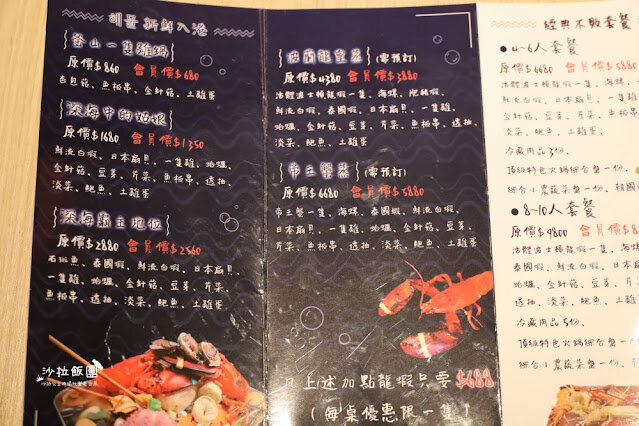 新鮮入港
釜山一隻雞鍋
原價$860 會員價$680
杏包菇、魚板串、金針菇、土雞蛋
深海中的姑娘
原價$1680 會員價$1350
鮮流白蝦、日本扇貝、一隻雞、蛤蠣、
金針菇、豆芽、芹菜、魚板串、透抽、
淡菜、鮑魚、土雞蛋
深海霸主地位
原價$2880 會員價$2560
石斑魚、泰國蝦、鮮流白蝦、日本扇貝、
一隻雞、蛤蠣、金針菇、豆芽、芹菜、
魚板串、透抽、淡菜、鮑魚、土雞蛋
波士頓龍蝦蒸(需預訂)
原價$4380 會員價$3880
活體波士頓龍蝦一隻、海螺、泡豬蝦、
鮮流白蝦、泰國蝦、日本扇貝、一隻雞、
蛤蠣、金針菇、豆芽、芹菜、魚板串、透抽、
淡菜、鮑魚、土雞蛋
帝王蟹蒸(需預訂)
原價$6680 會員價$5880
帝王蟹一隻、海螺、泰國蝦、鮮流白蝦、
日本扇貝、一隻雞、蛤蠣、金針菇、豆芽、
芹菜、魚板串、透抽、淡菜、鮑魚、土雞蛋
以上述加點龍蝦只要$688
(每桌優惠限一隻
經典不敗套餐
●4~6人套餐
原價$6680 會員價$5880
活體波士頓龍蝦一隻、
鮮流白蝦、泰國蝦、日本扇
蛤蠣、金針菇、豆芽、芹菜
淡菜、鮑魚、土雞蛋
冷藏肉品3份、
頂級特色火鍋綜合盤一份、
綜合小農蔬菜盤一份、韓國
●8~10人套餐
原價$9800 會員價$
活體波士頓龍蝦一隻、海
泰國蝦、鮮流白蝦、日本扇
蛤蠣、金針菇、豆芽、芹
抽、淡菜、鮑魚、土雞蛋
冷藏肉品5份、
頂級特色火鍋綜合盤一份
綜合小農蔬菜盤一份、
沙拉飯團